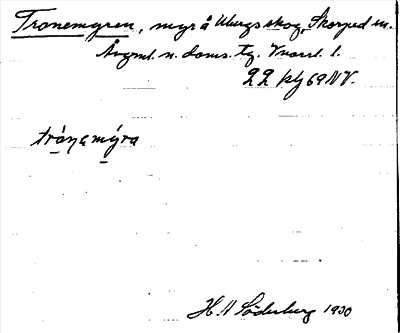 Tranemyren, myr å Ulvugsskog, Skorped sn.
Ångml. n. doms. tg. Vnorrl. l.
22 klj 69 NV.
tránamýra
H. N Söderberg 1930